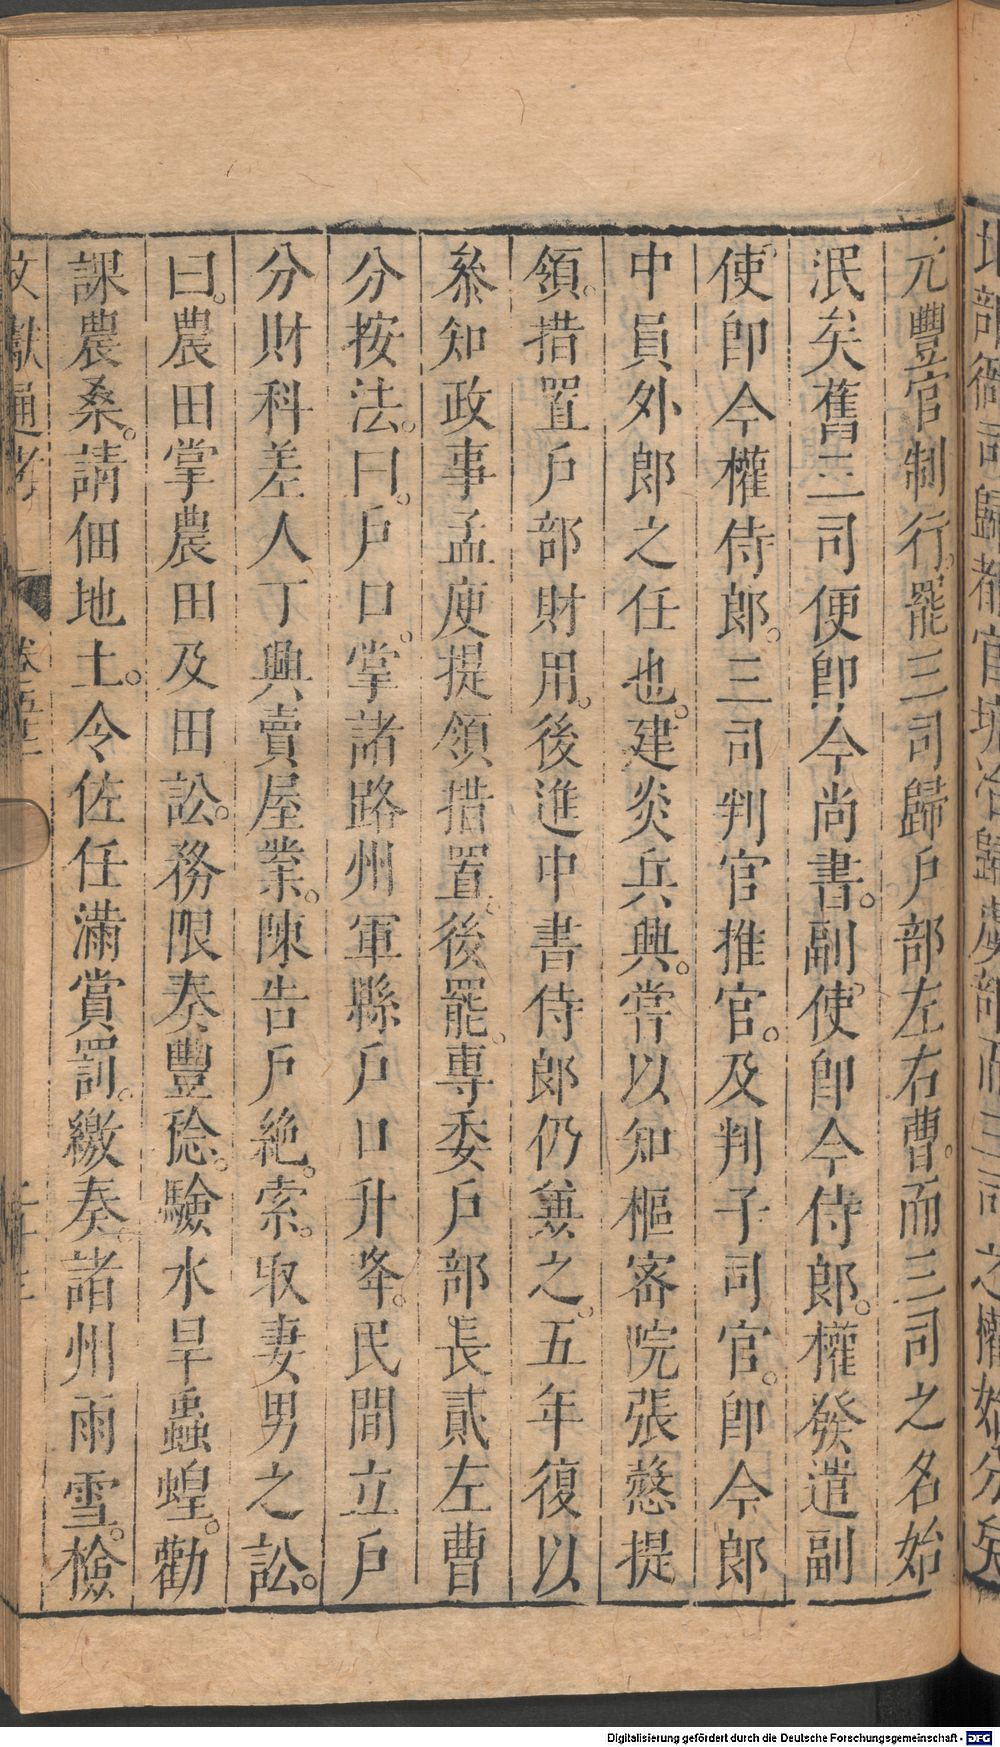 地部衞司歸都官坑冶歸虞部而三司之權始分矣
元豐官制行罷三司歸戶部左右曹而三司之名始
泯矣舊三司使卽今尚書副使卽今侍郎權發遣副
使卽今權侍郎三司判官推官及判子司官卽今郎
中員外郎之任也建炎兵興嘗以知樞密院張慤提
領措置戶部財用後進中書侍郎仍兼之五年復以
叅知政事孟庾提領措置後罷專委戶部長貳左曹
分按法曰戶口掌諸路州軍縣戶口升降民間立戶
分財科差人丁興賣屋業陳告戶絶索取妻男之訟
曰農田掌農田及田訟務限奏豐稔驗水旱蟲蝗勸
課農桑請佃地土令佐任滿賞罰繳奏諸州雨雪檢
文獻通考 卷五十二 二十三
Digitalisierung gefördert durch die Deutsche Forschungsgemeinschaft - DFG